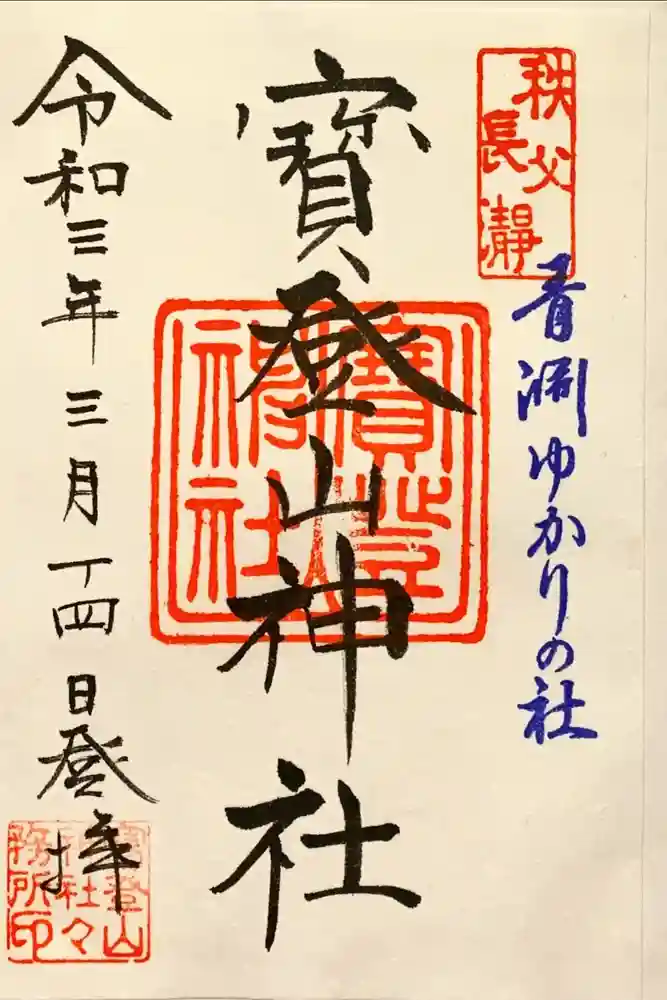 秩父
長瀞
青渕ゆかりの社
寶登山神社
寶登山
神社
令和三年三月十四日登拝
寶登山
神社々
務所印